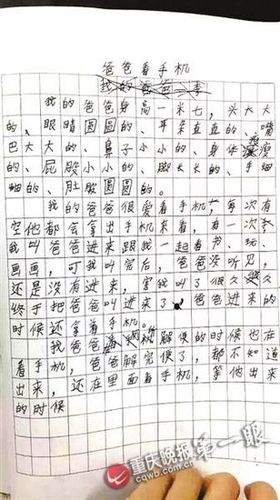 爸爸看手机
我的爸爸身高一米七,头大大
的、眼睛圆圆的、耳朵直直的、嘴
巴大大的、鼻子小小的、身体
的、屁股小小的、脚长长的、手细
细的、肚皮圆圆的。
我的爸爸很爱看手机,每次有
空他都会拿出手机来看,有一次
我叫爸爸进来跟我一起看书、玩、
画画,可我叫完后,爸爸没听见,
还是没有进来,害我叫了很久
终于把爸爸叫进来了。爸爸进来的
时候还拿着手机。
我爸爸解便的时候也在
看手机,爸爸解完便了,都不知道
出来,还在里面看手机,等他出来
的时候
重庆晚报 第一眼
www.cqwb.com.cn